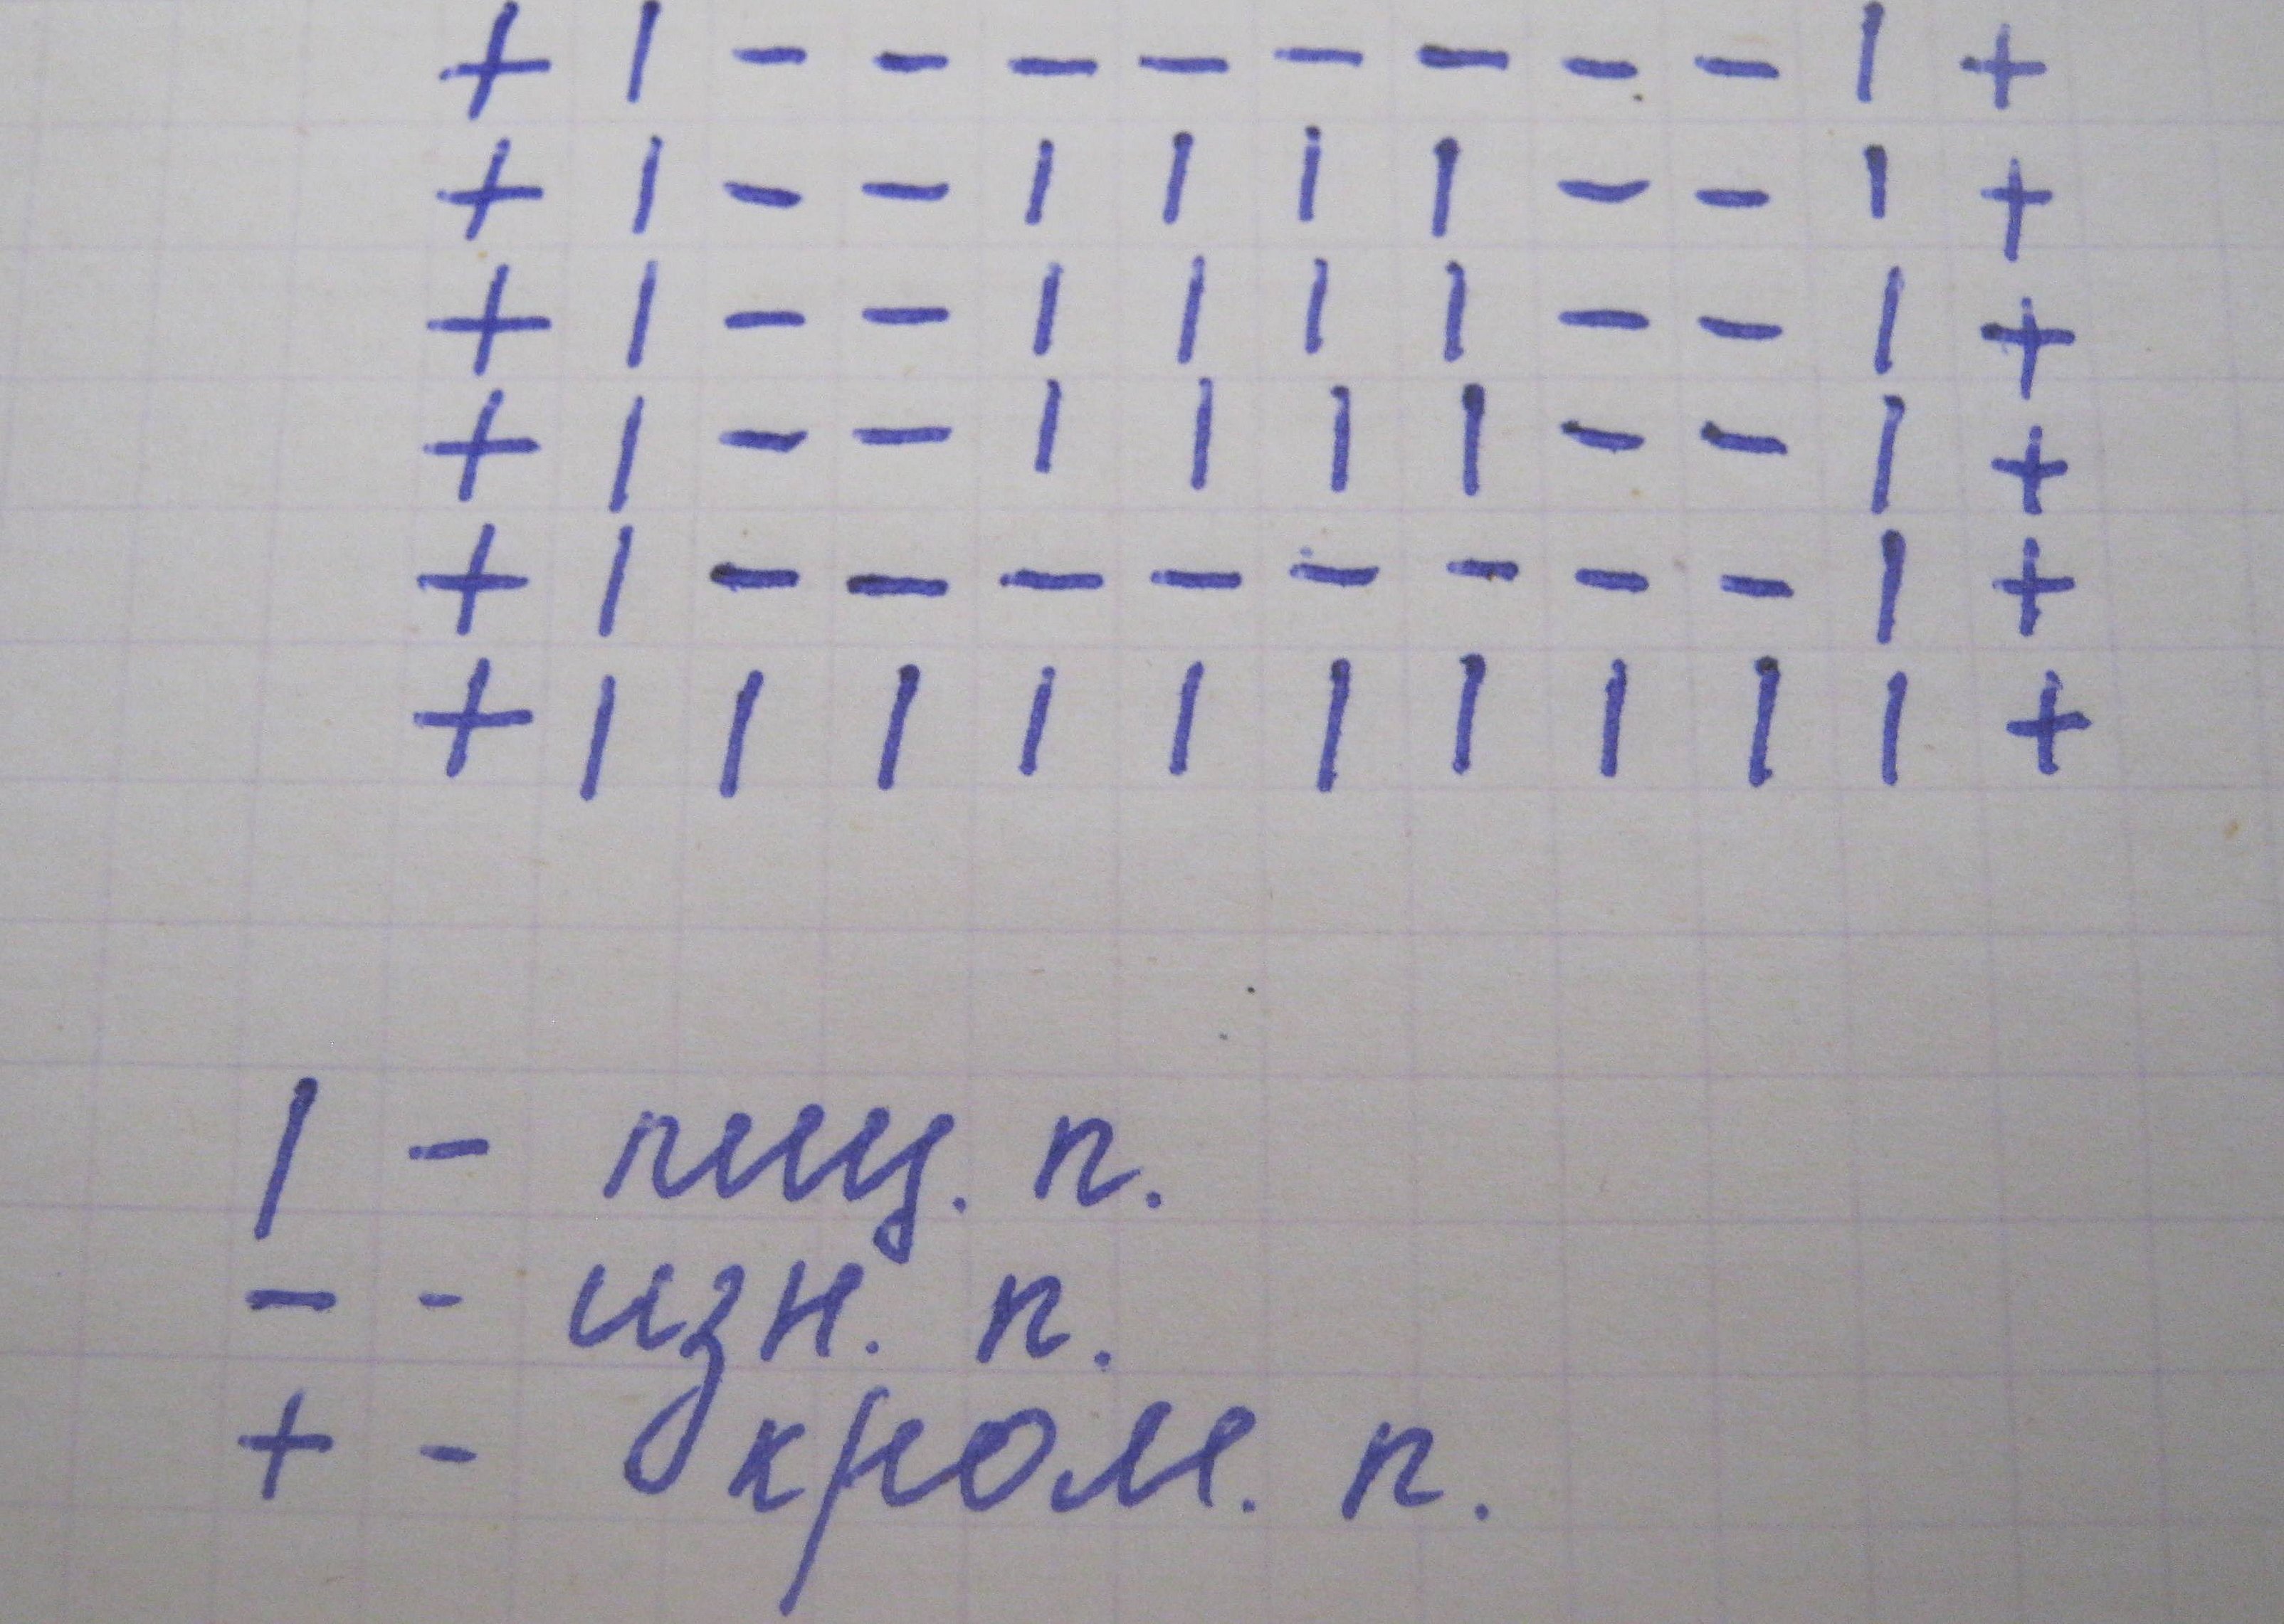 + | - - - - - - - - | +
+ | - - | | | | - - | +
+ | - - | | | | - - | +
+ | - - | | | | - - | +
+ | - - - - - - - - | +
+ | | | | | | | | | | +
| - лиц. п.
- - изн. п.
+ - кром. п.